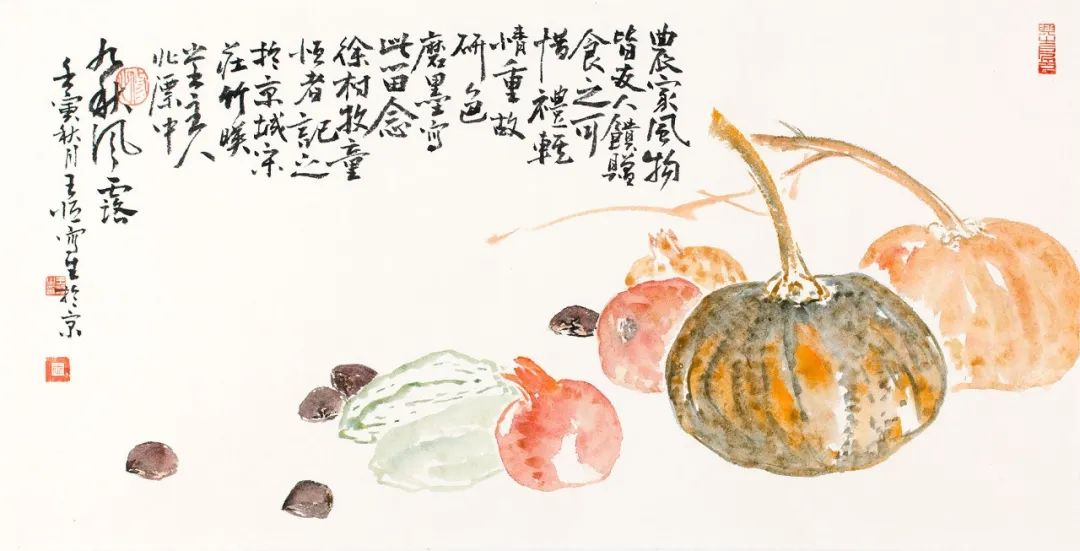 農家風物
皆友人饋贈
食之可
惜禮輕
情重故
研色
磨墨寫
此留念
徐村牧童
恒者記之
於京城宋
莊竹暎
堂主人
北漂中
九秋風露
壬寅秋月王恒寫生於京